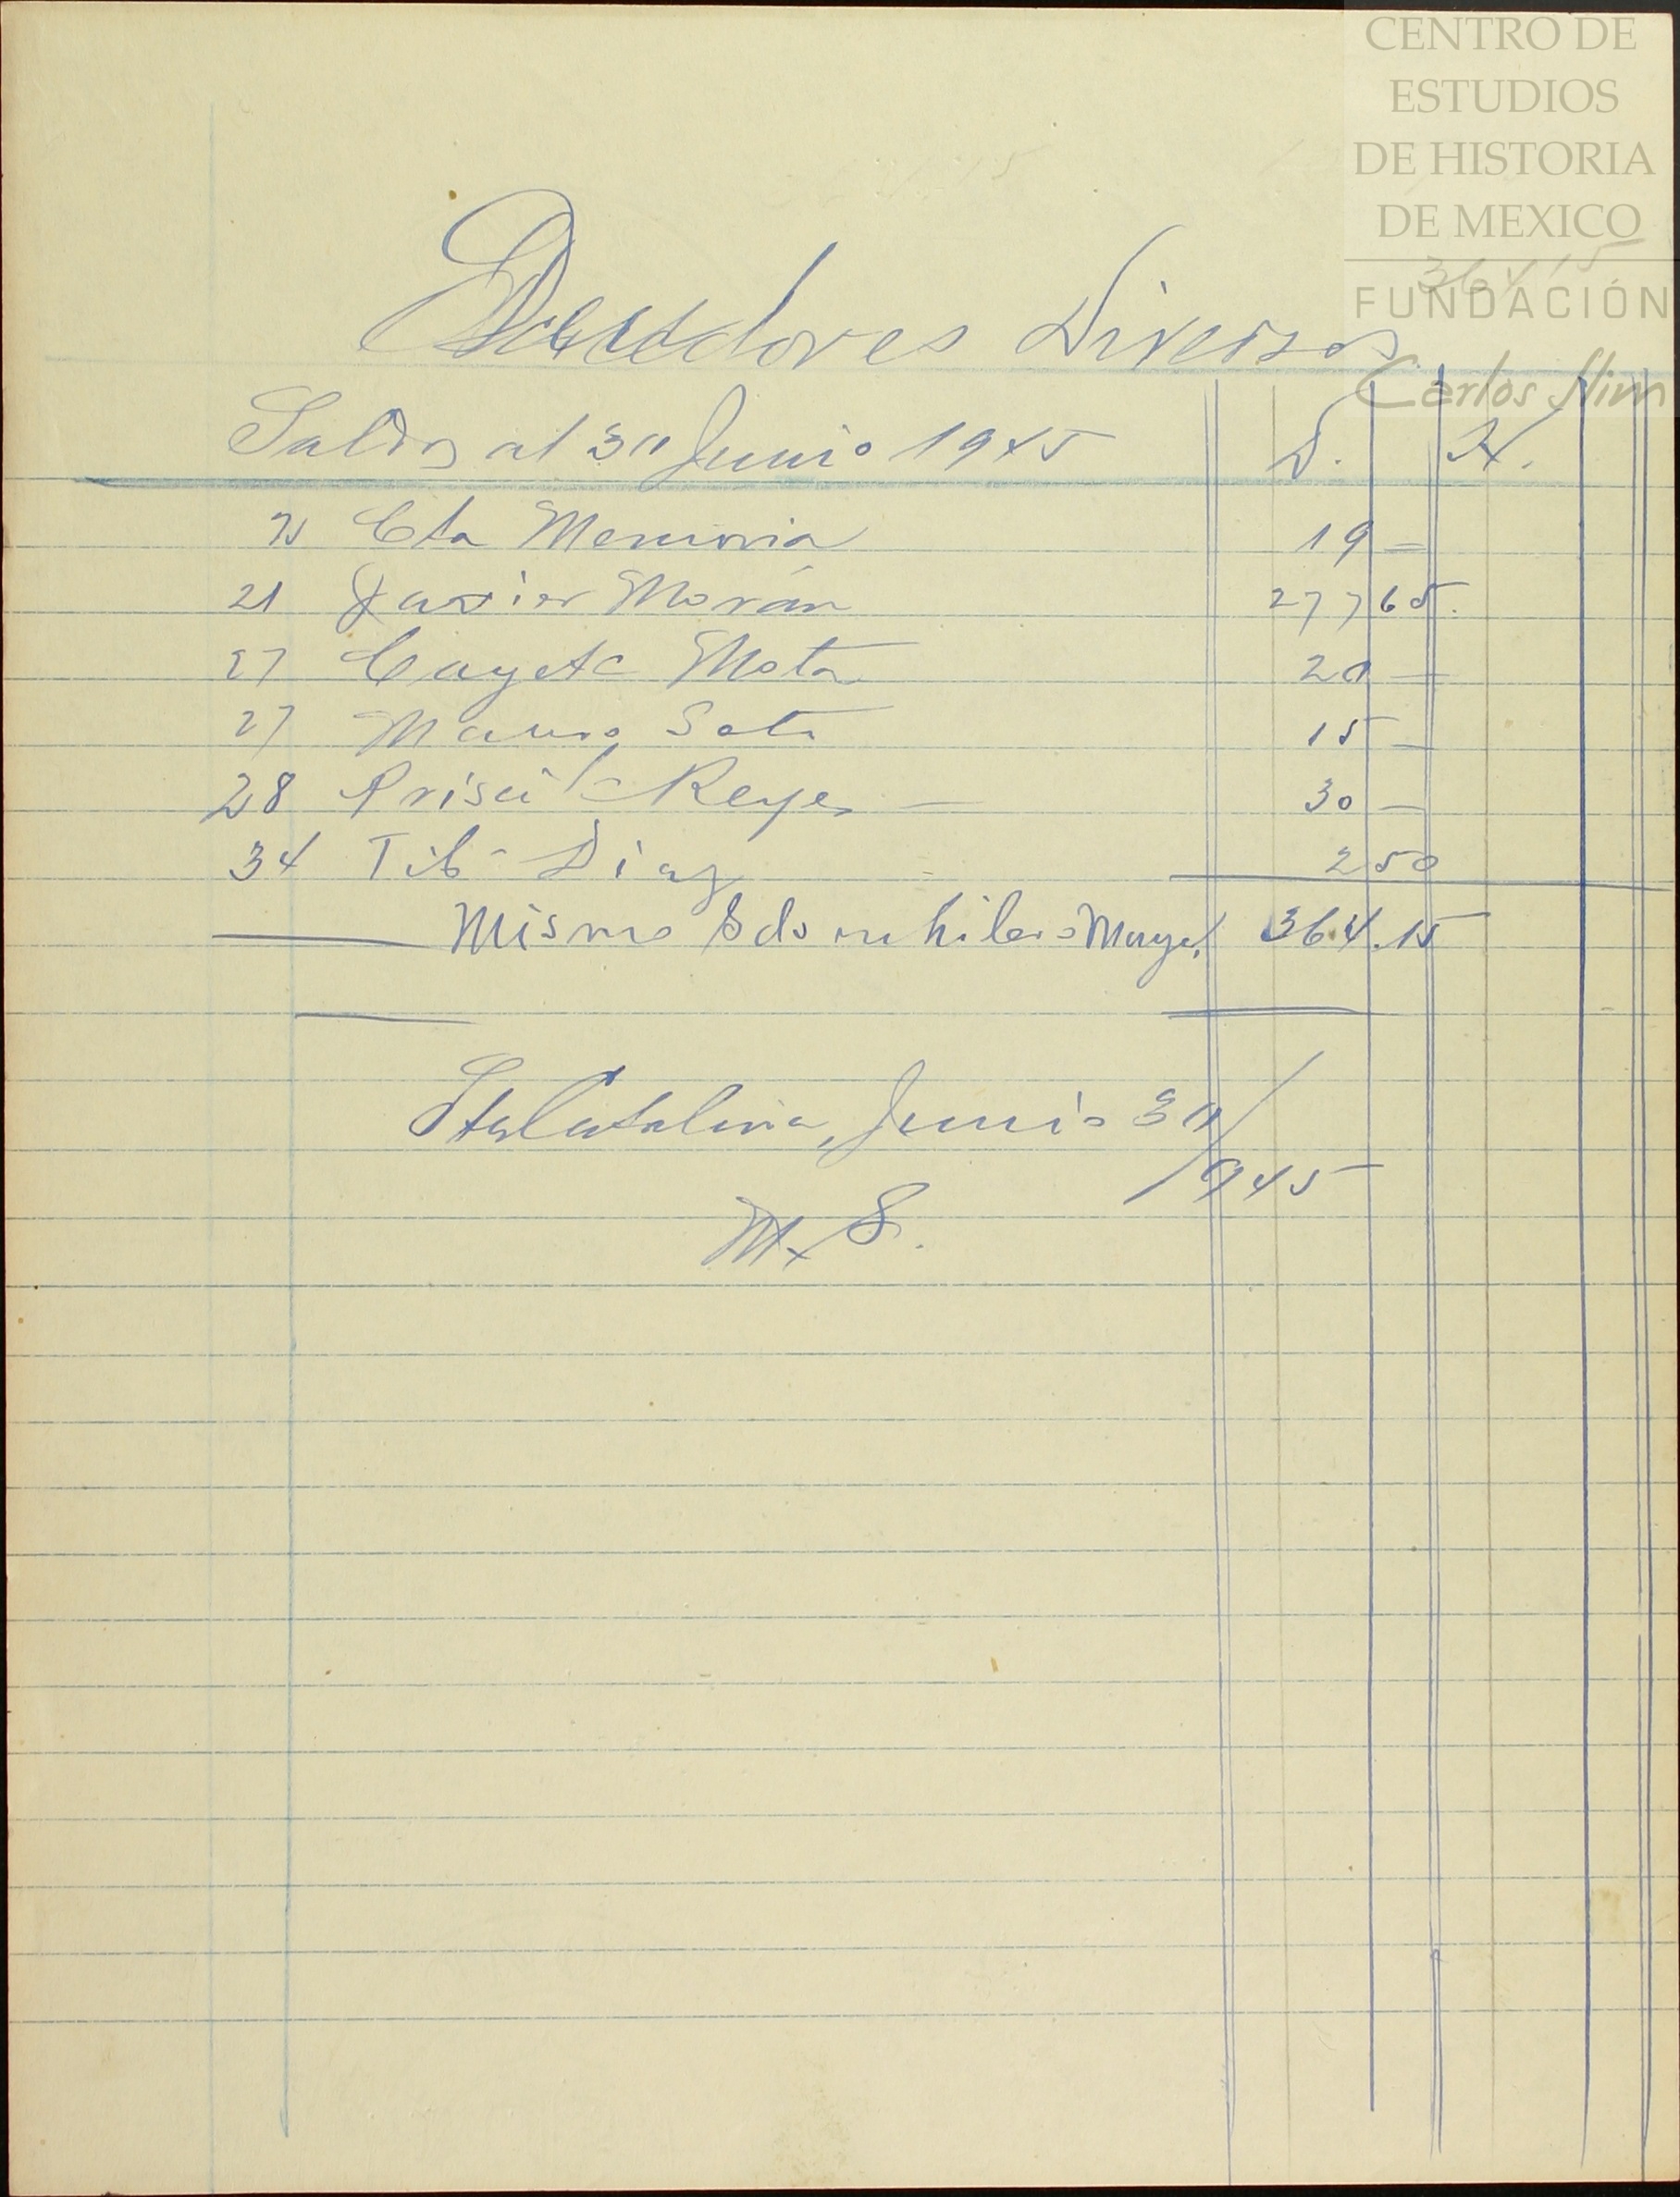 CENTRO DE
ESTUDIOS
DE HISTORIA
DE MEXICO
36415
FUNDACIÓN
Carlos Slim
Deudores Diversos
Saldos al 30 Junio 1945 D. H.
Cta Memoria 19 —
21 Javier Morán 277 65.
27 Cayetc Mota 20 —
27 Mauro Soto 15 —
28 Priscil- Reyes — 30 —
34 Tib- Diaz 2 50
Mismo Sdo en Mayor 364.15
Sta Catalina, Junio 30/
1945
M. S.